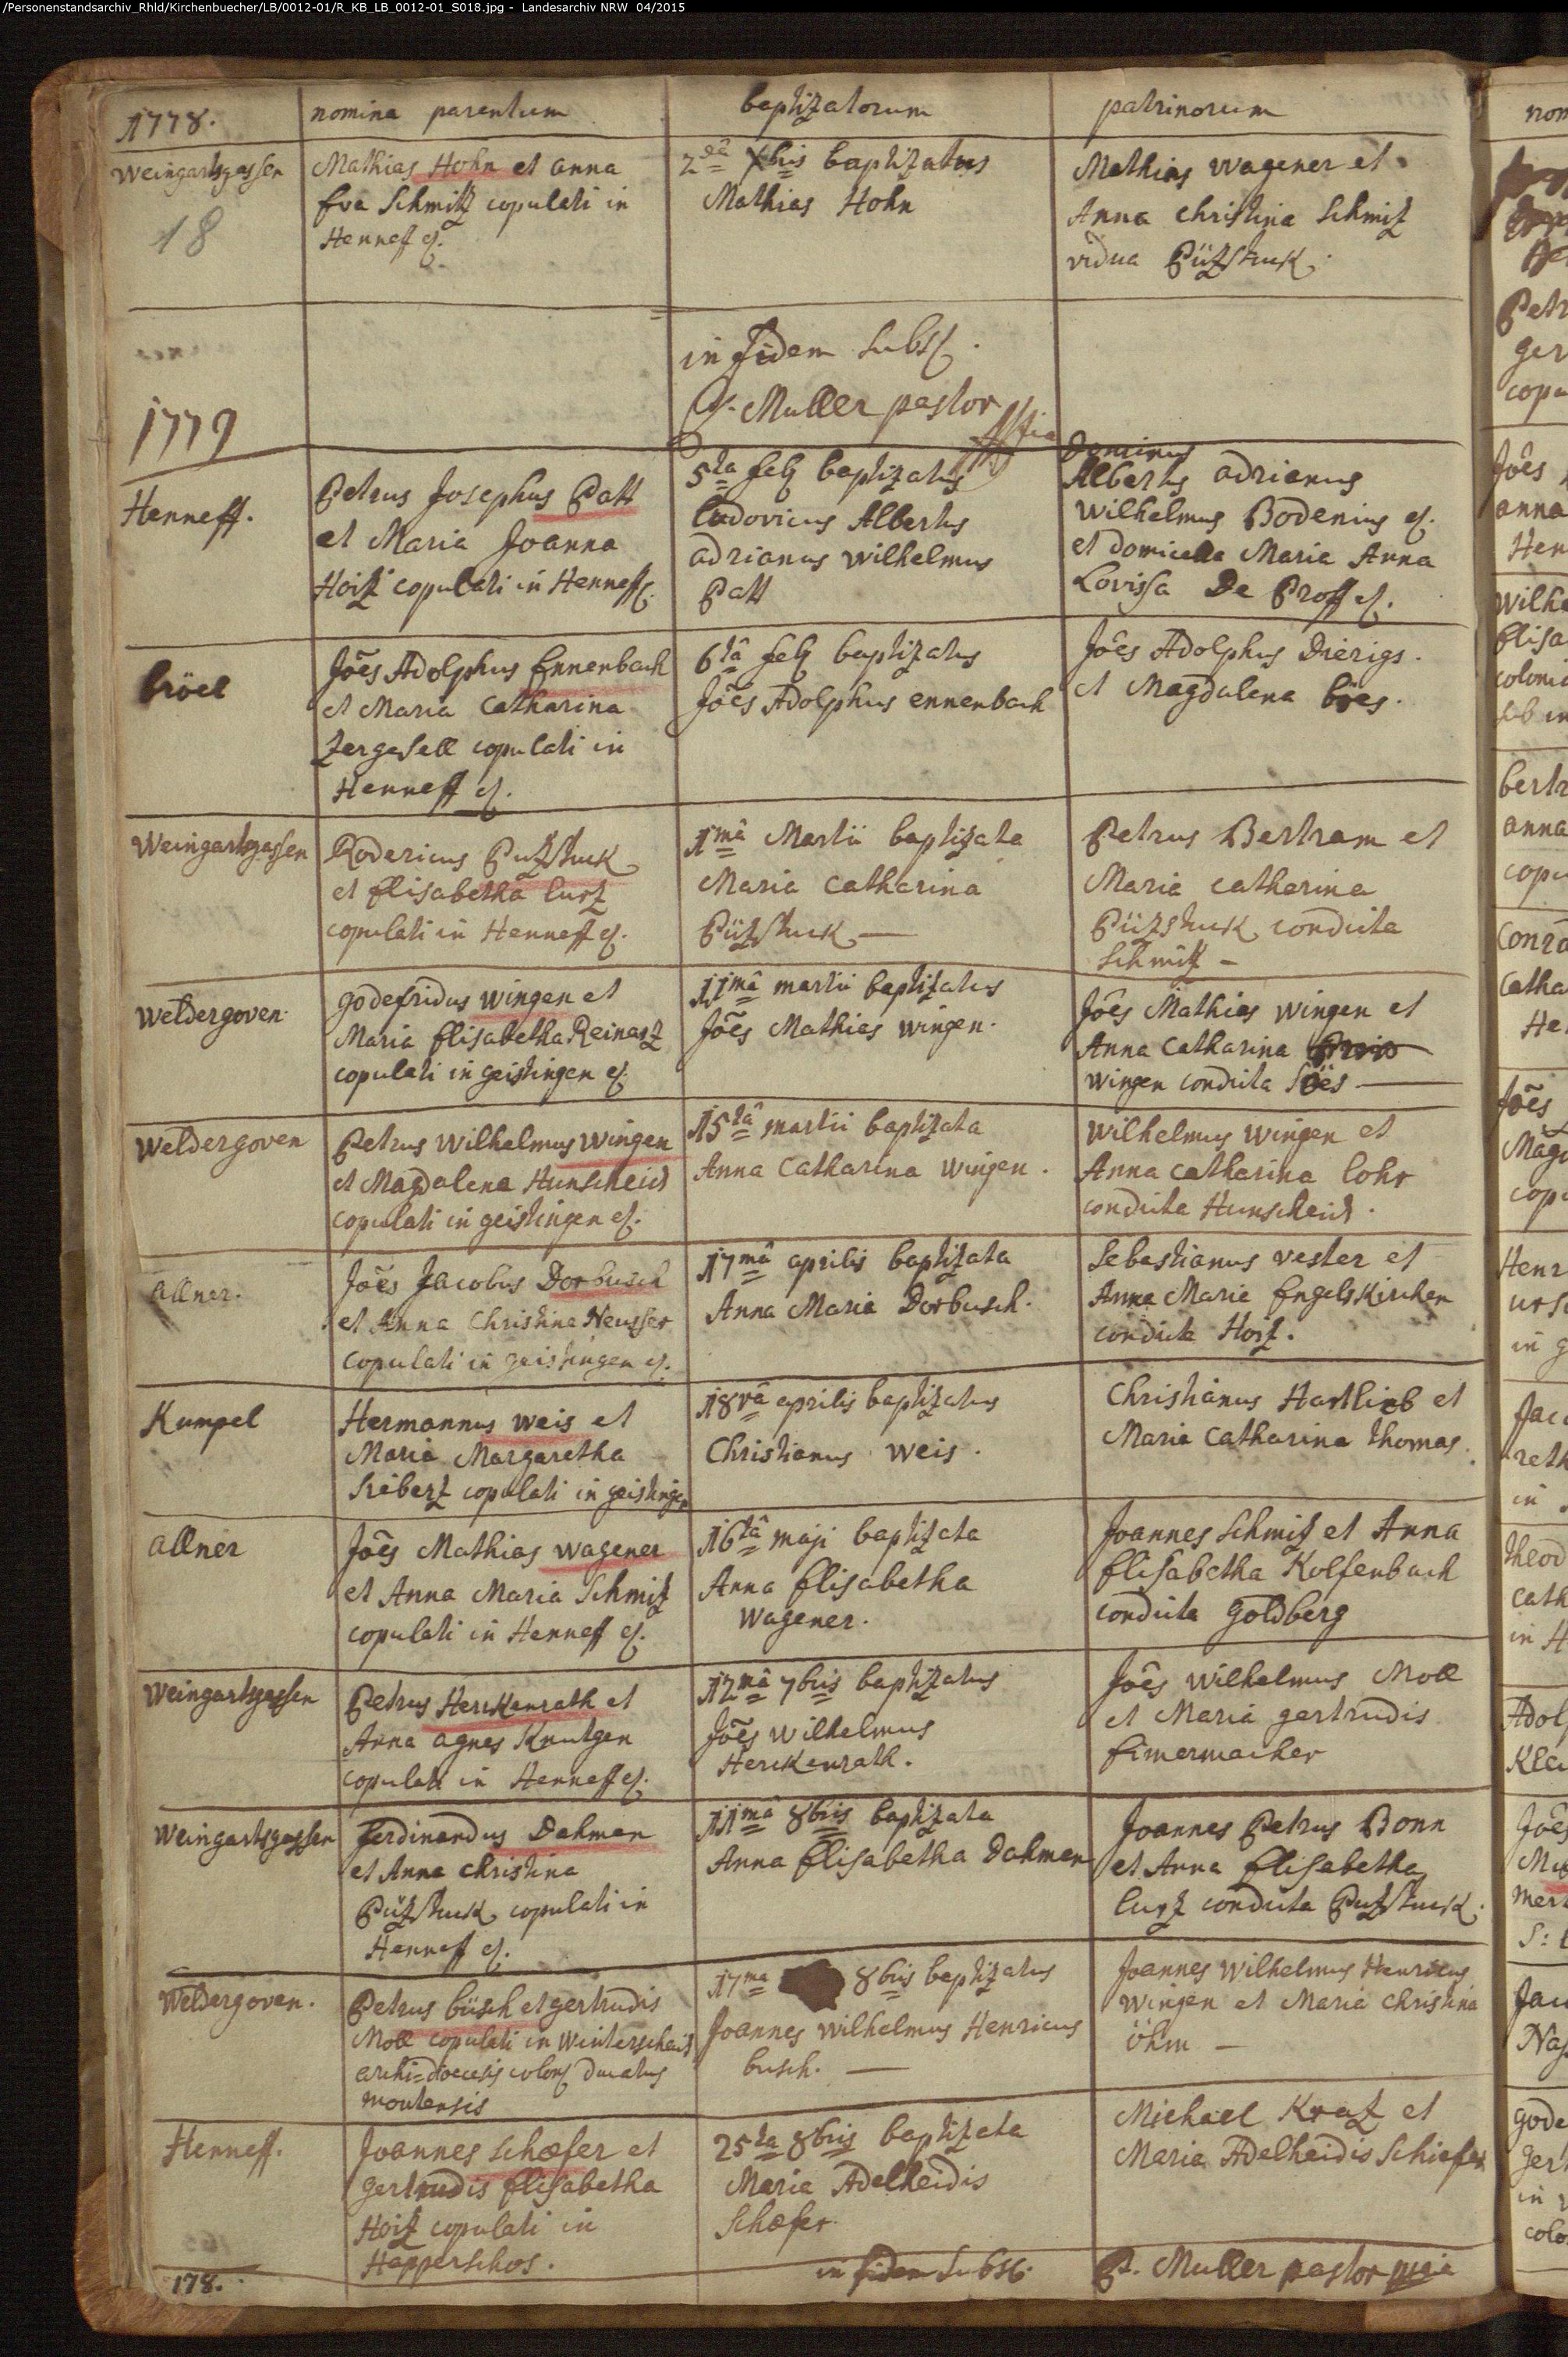 /Personenstandsarchiv_Rhld/Kirchenbuecher/LB/0012-01/R_KB_LB_0012-01_S018.jpg - Landesarchiv NRW 04/2015
1778.
nomina parentum
baptizatorum
patrinorum
Weingartsgassen
18
Mathias Hohn et anna
Eva Schmitz copulati in
Henneff
2dâ Xbris baptizatus
Mathias Hohn
Mathias wagener et
Anna christina Schmitz
vidua Pützstuck.
in fidem subs
Muller pastor
1779
Henneff.
Petrus Josephus Patt
et Maria Joanna
Hoitz copulati in Henneff
5ta feb baptizatus
ludovicus Albertus
adrianus wilhelmus
Patt
Dominus
Albertus adrianus
wilhelmus Bodenius
et domicella Maria Anna
Lovissa De Proff
bröel
Joês Adolphus Ennenbach
et Maria Catharina
Zergesell copulati in
Henneff
6tâ feb baptizatus
Joês Adolphus ennenbach
Joês Adolphus Dierigs.
et Magdalena
Weingartsgassen
Rodericus Putzstuck
et Elisabetha Curtz
copulati in Henneff
1mâ Martii baptizata
Maria Catharina
Pützstuck —
Petrus Bertram et
Maria catharina
Pützstuck conducta
Schmitz -
weldergoven.
godefridus wingen et
Maria Elisabetha Reinartz
copulati in geistingen
11mâ martii baptizatus
Joês Mathias wingen.
Joês Mathias wingen et
Anna Catharina
wingen conducta
weldergoven
Petrus wilhelmus wingen
et Magdalena Hunscheid
copulati in geistingen
15tâ martii baptizata
Anna Catharina wingen.
wilhelmus wingen et
Anna catharina lohr
conducta Hunscheid.
allner.
Joês Jacobus Dorbusch
et Anna Christina Neusser
copulati in geistingen
17mâ aprilis baptizata
Anna Maria Dorbusch.
Sebastianus vester et
Anna Maria Engelskirchen
conducta Hoitz.
Kumpel
Hermannus weis et
Maria Margaretha
Siebertz copulati in geistingen
18vâ aprilis baptizatus
Christianus weis.
Christianus Hartlieb et
Maria Catharina thomas.
allner
Joês Mathias wagener
et Anna Maria Schmitz
copulati in Henneff
16tâ maji baptizata
Anna Elisabetha
wagener.
Joannes Schmitz et Anna
Elisabetha Kolfenbach
conducta goldberg
weingartsgassen
Petrus Herckenrath et
Anna agnes Knutgen
copulati in Henneff
12mâ 7bris baptizatus
Joês wilhelmus
Herckenrath.
Joês wilhelmus Moll
et Maria gertrudis
Eimermacher
weingartsgassen
ferdinandus Dahmen
et Anna christina
Pützstuck copulati in
Henneff
11mâ 8bris baptizata
Anna Elisabetha Dahmen
Joannes Petrus Bonn
et Anna Elisabetha
Curtz conducta Putzstuck.
weldergoven.
Petrus büsch et gertrudis
Moll copulati in Winterscheid
archi=dioecesis colon ducatus
montensis
17ma 8bris baptizatus
Joannes wilhelmus Henricus
busch. —
Joannes wilhelmus Henricus
wingen et Maria christina
öhm —
Henneff.
Joannes Schæfer et
gertrudis Elisabetha
Hoitz copulati in
Happerschos.
25ta 8bris baptizata
Maria Adelheidis
Schæfer.
Michael Kratz et
Maria Adelheidis Schiefer
178.
in fidem subss
P. Muller pastor